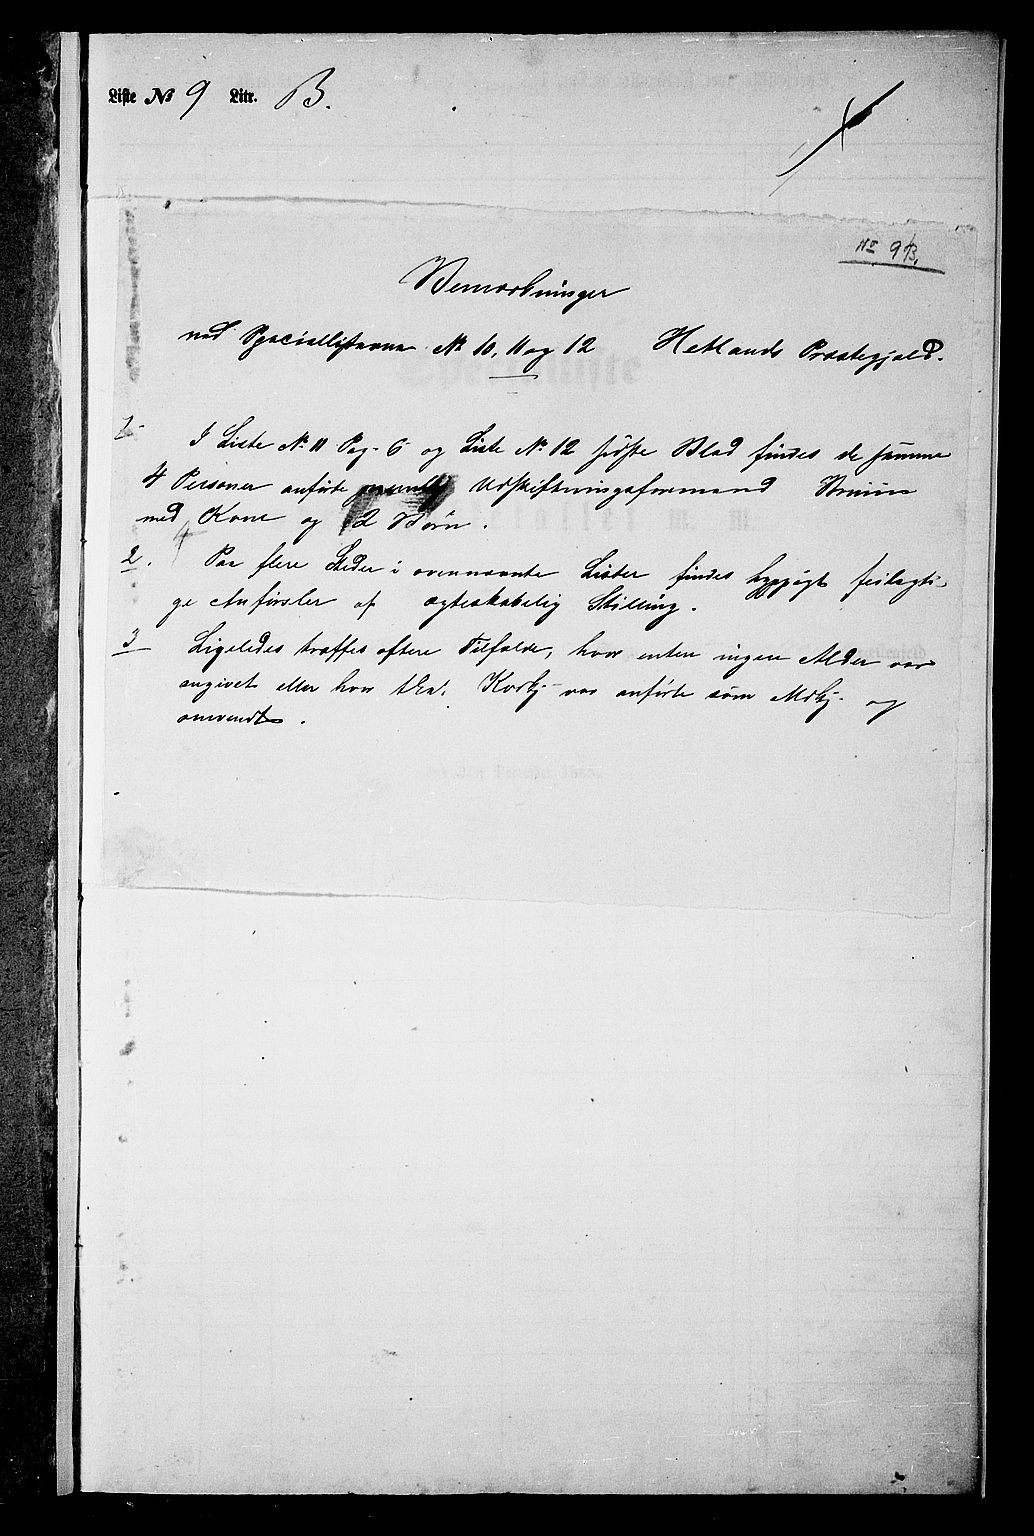 Liste No 9 Litr. B.
No 9 B.
Bemærkninger
ved Speciallisterne No 10, 11 og 12 Hetlands Præstegjeld.
1. I Liste No 11 Pag. 6 og Liste No 12 sidste Blad findes de samme
4 Personer anførte nemlig Udskiftningsformand
med Kone og 2 Børn.
2. Paa flere Steder i ovennævnte Lister findes hyppigt feilagti-
ge Anførsler af ægteskabelig Stilling.
3 Ligeledes træffes oftere Tilfælde, hvor enten ingen Alder var
angivet eller hvor Kvkj. var anførte som Mdkj. og
omvendt.